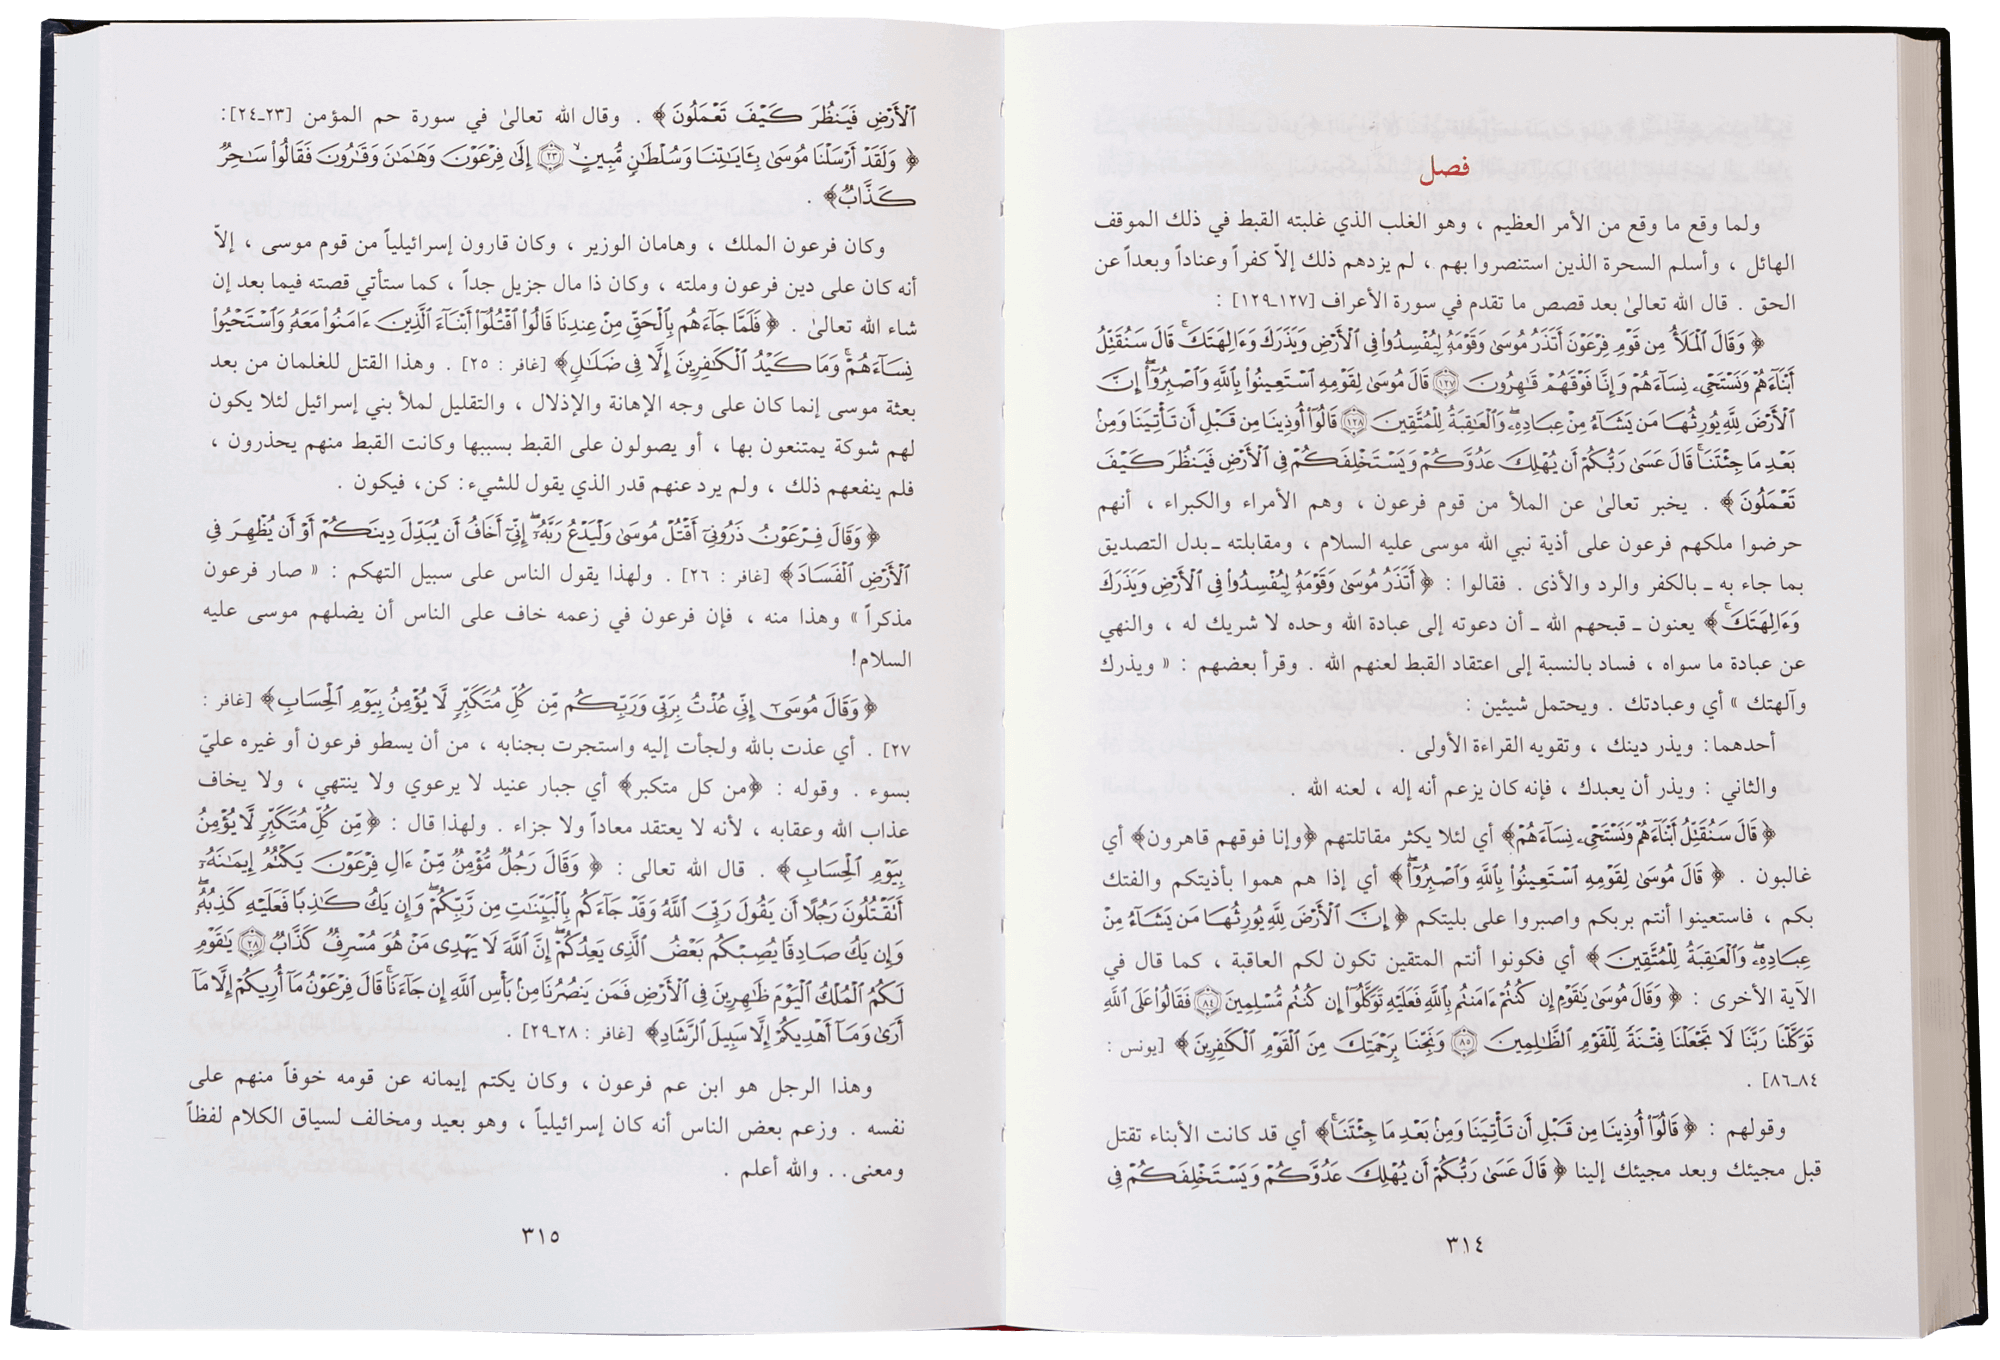 فصل
ولما وقع ما وقع من الأمر العظيم ، وهو الغلب الذي غلبته القبط في ذلك الموقف
الهائل ، وأسلم السحرة الذين استنصروا بهم ، لم يزدهم ذلك إلاّ كفراً وعناداً وبعداً عن
الحق . قال الله تعالىٰ بعد قصص ما تقدم في سورة الأعراف [١٢٧ـ١٢٩] :
﴿ وَقَالَ ٱلْمَلَأُ مِن قَوْمِ فِرْعَوْنَ أَتَذَرُ مُوسَىٰ وَقَوْمَهُۥ لِيُفْسِدُوا۟ فِى ٱلْأَرْضِ وَيَذَرَكَ وَءَالِهَتَكَ ۚ قَالَ سَنُقَتِّلُ
أَبْنَآءَهُمْ وَنَسْتَحْىِۦ نِسَآءَهُمْ وَإِنَّا فَوْقَهُمْ قَـٰهِرُونَ ۝١٢٧ قَالَ مُوسَىٰ لِقَوْمِهِ ٱسْتَعِينُوا۟ بِٱللَّهِ وَٱصْبِرُوٓا۟ ۖ إِنَّ
ٱلْأَرْضَ لِلَّهِ يُورِثُهَا مَن يَشَآءُ مِنْ عِبَادِهِۦ ۖ وَٱلْعَـٰقِبَةُ لِلْمُتَّقِينَ ۝١٢٨ قَالُوٓا۟ أُوذِينَا مِن قَبْلِ أَن تَأْتِيَنَا وَمِنۢ
بَعْدِ مَا جِئْتَنَا ۚ قَالَ عَسَىٰ رَبُّكُمْ أَن يُهْلِكَ عَدُوَّكُمْ وَيَسْتَخْلِفَكُمْ فِى ٱلْأَرْضِ فَيَنظُرَ كَيْفَ
تَعْمَلُونَ ﴾ . يخبر تعالىٰ عن الملأ من قوم فرعون ، وهم الأمراء والكبراء ، أنهم
حرضوا ملكهم فرعون على أذية نبي الله موسى عليه السلام ، ومقابلته ـ بدل التصديق
بما جاء به ـ بالكفر والرد والأذى . فقالوا : ﴿ أَتَذَرُ مُوسَىٰ وَقَوْمَهُۥ لِيُفْسِدُوا۟ فِى ٱلْأَرْضِ وَيَذَرَكَ
وَءَالِهَتَكَ ۚ ﴾ يعنون ـ قبحهم الله ـ أن دعوته إلى عبادة الله وحده لا شريك له ، والنهي
عن عبادة ما سواه ، فساد بالنسبة إلى اعتقاد القبط لعنهم الله . وقرأ بعضهم : « ويذرك
وآلهتك » أي وعبادتك . ويحتمل شيئين :
أحدهما: ويذر دينك ، وتقويه القراءة الأولى .
والثاني : ويذر أن يعبدك ، فإنه كان يزعم أنه إله ، لعنه الله .
﴿ قَالَ سَنُقَتِّلُ أَبْنَآءَهُمْ وَنَسْتَحْىِۦ نِسَآءَهُمْ﴾ أي لئلا يكثر مقاتلتهم ﴿وإنا فوقهم قاهرون﴾ أي
غالبون . ﴿ قَالَ مُوسَىٰ لِقَوْمِهِ ٱسْتَعِينُوا۟ بِٱللَّهِ وَٱصْبِرُوٓا۟ ۖ﴾ أي إذا هم هموا بأذيتكم والفتك
بكم ، فاستعينوا أنتم بربكم واصبروا على بليتكم ﴿ إِنَّ ٱلْأَرْضَ لِلَّهِ يُورِثُهَا مَن يَشَآءُ مِنْ
عِبَادِهِۦ ۖ وَٱلْعَـٰقِبَةُ لِلْمُتَّقِينَ ﴾ أي فكونوا أنتم المتقين تكون لكم العاقبة ، كما قال في
الآية الأخرى : ﴿ وَقَالَ مُوسَىٰ يَـٰقَوْمِ إِن كُنتُمْ ءَامَنتُم بِٱللَّهِ فَعَلَيْهِ تَوَكَّلُوٓا۟ إِن كُنتُم مُّسْلِمِينَ ۝٨٤ فَقَالُوا۟ عَلَى ٱللَّهِ
تَوَكَّلْنَا رَبَّنَا لَا تَجْعَلْنَا فِتْنَةً لِّلْقَوْمِ ٱلظَّـٰلِمِينَ ۝٨٥ وَنَجِّنَا بِرَحْمَتِكَ مِنَ ٱلْقَوْمِ ٱلْكَـٰفِرِينَ ﴾ [يونس :
٨٤ـ٨٦] .
وقولهم : ﴿ قَالُوٓا۟ أُوذِينَا مِن قَبْلِ أَن تَأْتِيَنَا وَمِنۢ بَعْدِ مَا جِئْتَنَا ۚ﴾ أي قد كانت الأبناء تقتل
قبل مجيئك وبعد مجيئك إلينا ﴿ قَالَ عَسَىٰ رَبُّكُمْ أَن يُهْلِكَ عَدُوَّكُمْ وَيَسْتَخْلِفَكُمْ فِى
٣١٤
ٱلْأَرْضِ فَيَنظُرَ كَيْفَ تَعْمَلُونَ ﴾ . وقال الله تعالىٰ في سورة حم المؤمن [٢٣ـ٢٤] :
﴿ وَلَقَدْ أَرْسَلْنَا مُوسَىٰ بِـَٔايَـٰتِنَا وَسُلْطَـٰنٍ مُّبِينٍ ۝٢٣ إِلَىٰ فِرْعَوْنَ وَهَـٰمَـٰنَ وَقَـٰرُونَ فَقَالُوا۟ سَـٰحِرٌ
كَذَّابٌ﴾ .
وكان فرعون الملك ، وهامان الوزير ، وكان قارون إسرائيلياً من قوم موسى ، إلاّ
أنه كان على دين فرعون وملته ، وكان ذا مال جزيل جداً ، كما ستأتي قصته فيما بعد إن
شاء الله تعالىٰ . ﴿ فَلَمَّا جَآءَهُم بِٱلْحَقِّ مِنْ عِندِنَا قَالُوا۟ ٱقْتُلُوٓا۟ أَبْنَآءَ ٱلَّذِينَ ءَامَنُوا۟ مَعَهُۥ وَٱسْتَحْيُوا۟
نِسَآءَهُمْ ۚ وَمَا كَيْدُ ٱلْكَـٰفِرِينَ إِلَّا فِى ضَلَـٰلٍ﴾ [غافر : ٢٥] . وهذا القتل للغلمان من بعد
بعثة موسى إنما كان على وجه الإهانة والإذلال ، والتقليل لملأ بني إسرائيل لئلا يكون
لهم شوكة يمتنعون بها ، أو يصولون على القبط بسببها وكانت القبط منهم يحذرون ،
فلم ينفعهم ذلك ، ولم يرد عنهم قدر الذي يقول للشيء: كن، فيكون .
﴿ وَقَالَ فِرْعَوْنُ ذَرُونِىٓ أَقْتُلْ مُوسَىٰ وَلْيَدْعُ رَبَّهُۥٓ ۖ إِنِّىٓ أَخَافُ أَن يُبَدِّلَ دِينَكُمْ أَوْ أَن يُظْهِرَ فِى
ٱلْأَرْضِ ٱلْفَسَادَ﴾ [غافر : ٢٦] . ولهذا يقول الناس على سبيل التهكم : « صار فرعون
مذكراً » وهذا منه ، فإن فرعون في زعمه خاف على الناس أن يضلهم موسى عليه
السلام!
﴿ وَقَالَ مُوسَىٰٓ إِنِّى عُذْتُ بِرَبِّى وَرَبِّكُم مِّن كُلِّ مُتَكَبِّرٍ لَّا يُؤْمِنُ بِيَوْمِ ٱلْحِسَابِ﴾ [غافر :
٢٧] . أي عذت بالله ولجأت إليه واستجرت بجنابه ، من أن يسطو فرعون أو غيره عليّ
بسوء . وقوله : ﴿من كل متكبر﴾ أي جبار عنيد لا يرعوي ولا ينتهي ، ولا يخاف
عذاب الله وعقابه ، لأنه لا يعتقد معاداً ولا جزاء . ولهذا قال : ﴿ مِّن كُلِّ مُتَكَبِّرٍ لَّا يُؤْمِنُ
بِيَوْمِ ٱلْحِسَابِ ﴾ . قال الله تعالى : ﴿ وَقَالَ رَجُلٌ مُّؤْمِنٌ مِّنْ ءَالِ فِرْعَوْنَ يَكْتُمُ إِيمَـٰنَهُۥٓ
أَتَقْتُلُونَ رَجُلًا أَن يَقُولَ رَبِّىَ ٱللَّهُ وَقَدْ جَآءَكُم بِٱلْبَيِّنَـٰتِ مِن رَّبِّكُمْ ۖ وَإِن يَكُ كَـٰذِبًا فَعَلَيْهِ كَذِبُهُۥ ۖ
وَإِن يَكُ صَادِقًا يُصِبْكُم بَعْضُ ٱلَّذِى يَعِدُكُمْ ۖ إِنَّ ٱللَّهَ لَا يَهْدِى مَنْ هُوَ مُسْرِفٌ كَذَّابٌ ۝٢٨ يَـٰقَوْمِ
لَكُمُ ٱلْمُلْكُ ٱلْيَوْمَ ظَـٰهِرِينَ فِى ٱلْأَرْضِ فَمَن يَنصُرُنَا مِنۢ بَأْسِ ٱللَّهِ إِن جَآءَنَا ۚ قَالَ فِرْعَوْنُ مَآ أُرِيكُمْ إِلَّا مَآ
أَرَىٰ وَمَآ أَهْدِيكُمْ إِلَّا سَبِيلَ ٱلرَّشَادِ﴾ [غافر : ٢٨ـ٢٩] .
وهذا الرجل هو ابن عم فرعون ، وكان يكتم إيمانه عن قومه خوفاً منهم على
نفسه . وزعم بعض الناس أنه كان إسرائيلياً ، وهو بعيد ومخالف لسياق الكلام لفظاً
ومعنى.. والله أعلم .
٣١٥